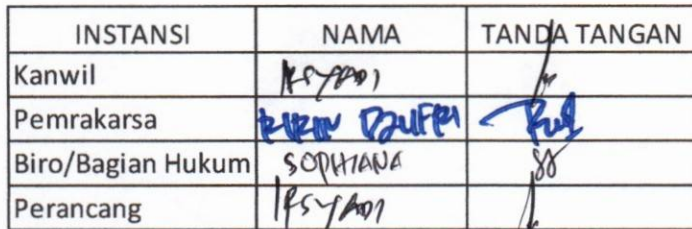 INSTANSI NAMA TANDA TANGAN
Kanwil IRSYADI
Pemrakarsa
Biro/Bagian Hukum SOPHIANA
Perancang IRSYADI